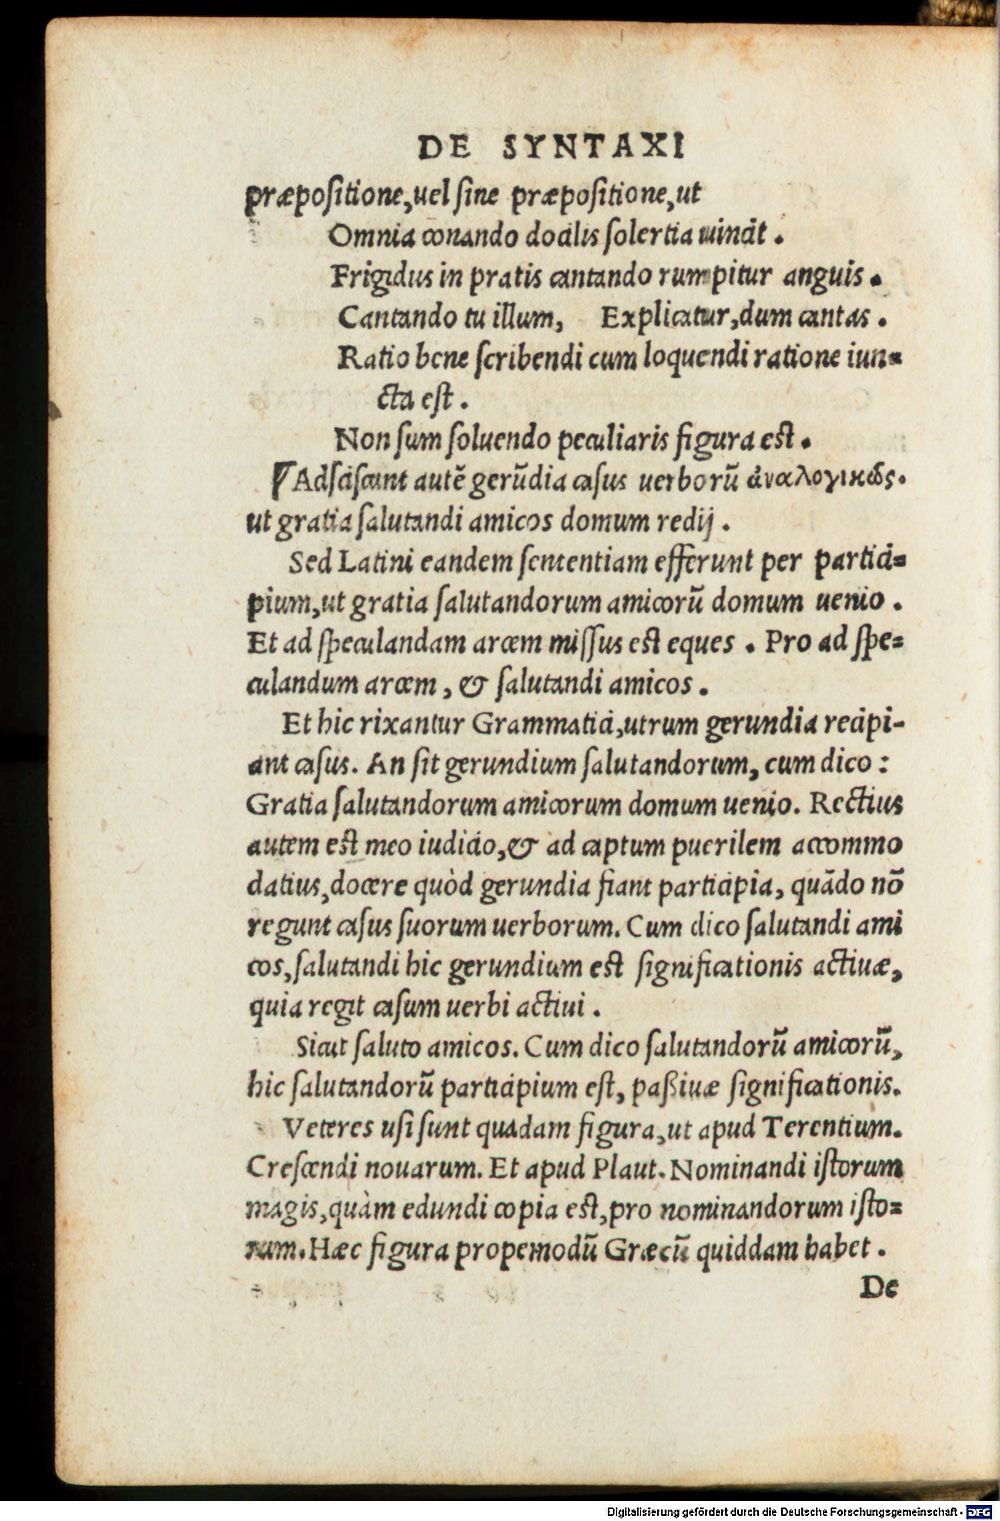 DE SYNTAXI
præpositione, uel sine præpositione, ut
Omnia conando docilis solertia uincit.
Frigidus in pratis cantando rumpitur anguis.
Cantando tu illum, Explicatur, dum cantas.
Ratio bene scribendi cum loquendi ratione iun=
cta est.
Non sum soluendo peculiaris figura est.
¶ Adsciscunt autẽ gerũdia casus uerborũ ἀναλογικῶς.
ut gratia salutandi amicos domum redij.
Sed Latini eandem sententiam efferunt per partici=
pium, ut gratia salutandorum amicorũ domum uenio.
Et ad speculandam arcem missus est eques. Pro ad spe=
culandum arcem, & salutandi amicos.
Et hic rixantur Grammatici, utrum gerundia recipi-
ant casus. An sit gerundium salutandorum, cum dico:
Gratia salutandorum amicorum domum uenio. Rectius
autem est meo iudicio, & ad captum puerilem accommo
datius, docere quòd gerundia fiant participia, quãdo nõ
regunt casus suorum uerborum. Cum dico salutandi ami
cos, salutandi hic gerundium est significationis actiuæ,
quia regit casum uerbi actiui.
Sicut saluto amicos. Cum dico salutandorũ amicorũ,
hic salutandorũ participium est, paßiuæ significationis.
Veteres usi sunt quadam figura, ut apud Terentium.
Crescendi nouarum. Et apud Plaut. Nominandi istorum
magis, quàm edundi copia est, pro nominandorum isto=
rum. Hæc figura propemodũ Græcũ quiddam habet.
De
Digitalisierung gefördert durch die Deutsche Forschungsgemeinschaft - DFG